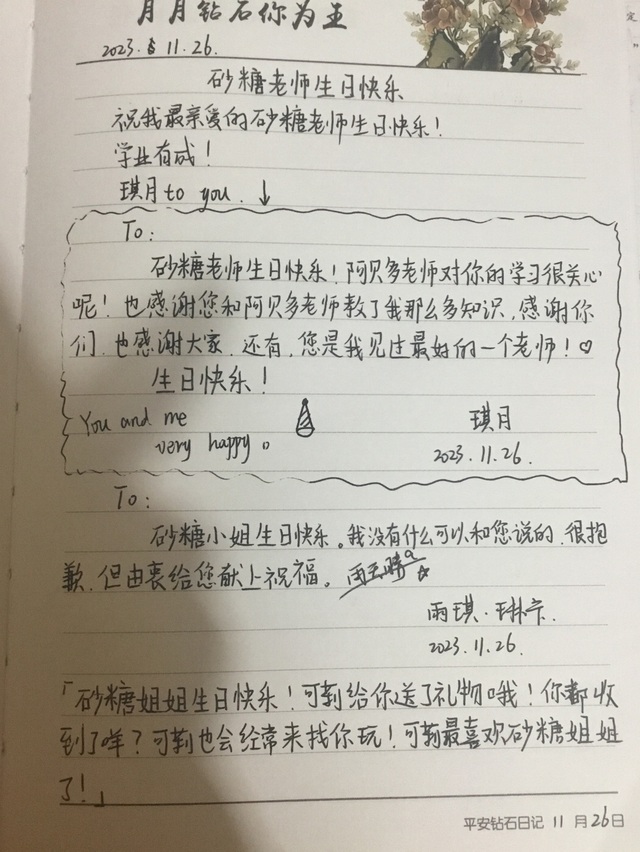 月月钻石你为王
2023. 11.26.
砂糖老师生日快乐
祝我最亲爱的砂糖老师生日快乐！
学业有成！
琪月 to you. ↓
To:
砂糖老师生日快乐！阿贝多老师对你的学习很关心
呢！也感谢您和阿贝多老师教了我那么多知识，感谢你
们，也感谢大家，还有，您是我见过最好的一个老师！♡
生日快乐！
You and me
very happy。
琪月
2023.11.26.
To:
砂糖小姐生日快乐。我没有什么可以和您说的，很抱
歉，但由衷给您献上祝福。
雨琪·琳卞.
2023.11.26.
「砂糖姐姐生日快乐！可莉给你送了礼物哦！你都收
到了咩？可莉也会经常来找你玩！可莉最喜欢砂糖姐姐
了！」
平安钻石日记 11 月 26 日
定